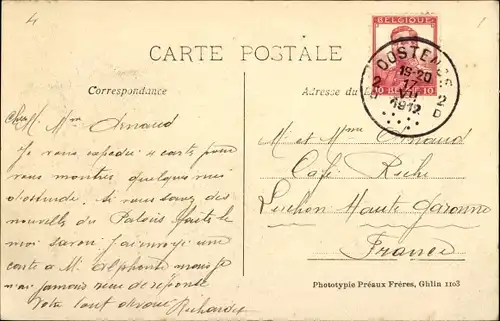 4
1
BELGIQUE
10 10
OOSTENDE
2 D
19-20
17
VII
1912
2 D
CARTE POSTALE
Correspondance
Adresse du
Cher M. Mme Arnaud
Je vous expedie 4 carte pour
vous montrer quelques vues
d'ostende. Si vous savez des
nouvelles du Palais faite le
moi savoir. J'ai envoyé une
carte a Mr alphonse mais je
n'ai jamais reçu de réponse
Votre tout dévoué
Mr et Mme Arnaud
Café Riche
Luchon Haute Garonne
France
Phototypie Préaux Frères, Ghlin 1103